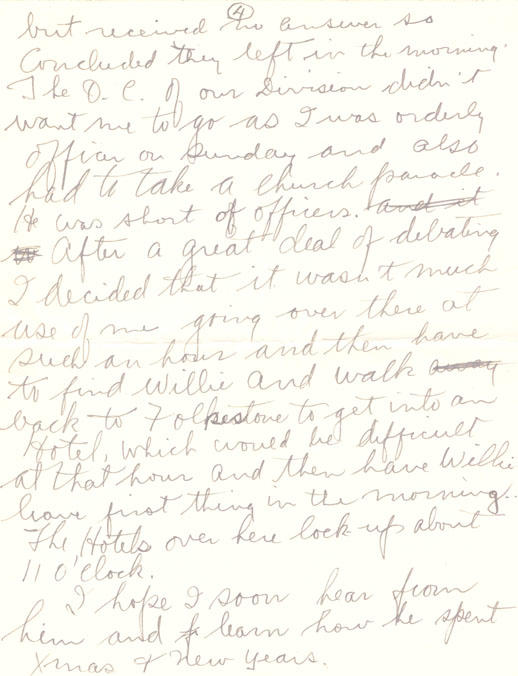 ④
but received no answer so
concluded they left in the morning.
The O. C. of our Division didn't
want me to go as I was orderly
officer on Sunday and also
had to take a church parade.
He was short of officers. and it
After a great deal of debating
I decided that it wasn't much
use of me going over there at
such an hour and then have
to find Willie and walk away
back to Folkestone to get into an
Hotel, which would be difficult
at that hour and then have Willie
leave first thing in the morning.
The Hotels over here lock up about
11 O'Clock.
I hope I soon hear from
him and learn how he spent
Xmas & New Years.